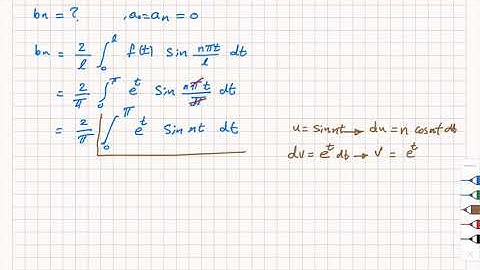 bn = ? , a₀ = an = 0
bn = 2/l ∫₀^l f(t) sin nπt/l dt
= 2/π ∫₀^π e^t sin nπt/π dt
= 2/π ∫₀^π e^t sin nt dt
u = sin nt → du = n cos nt dt
dv = e^t dt → v = e^t